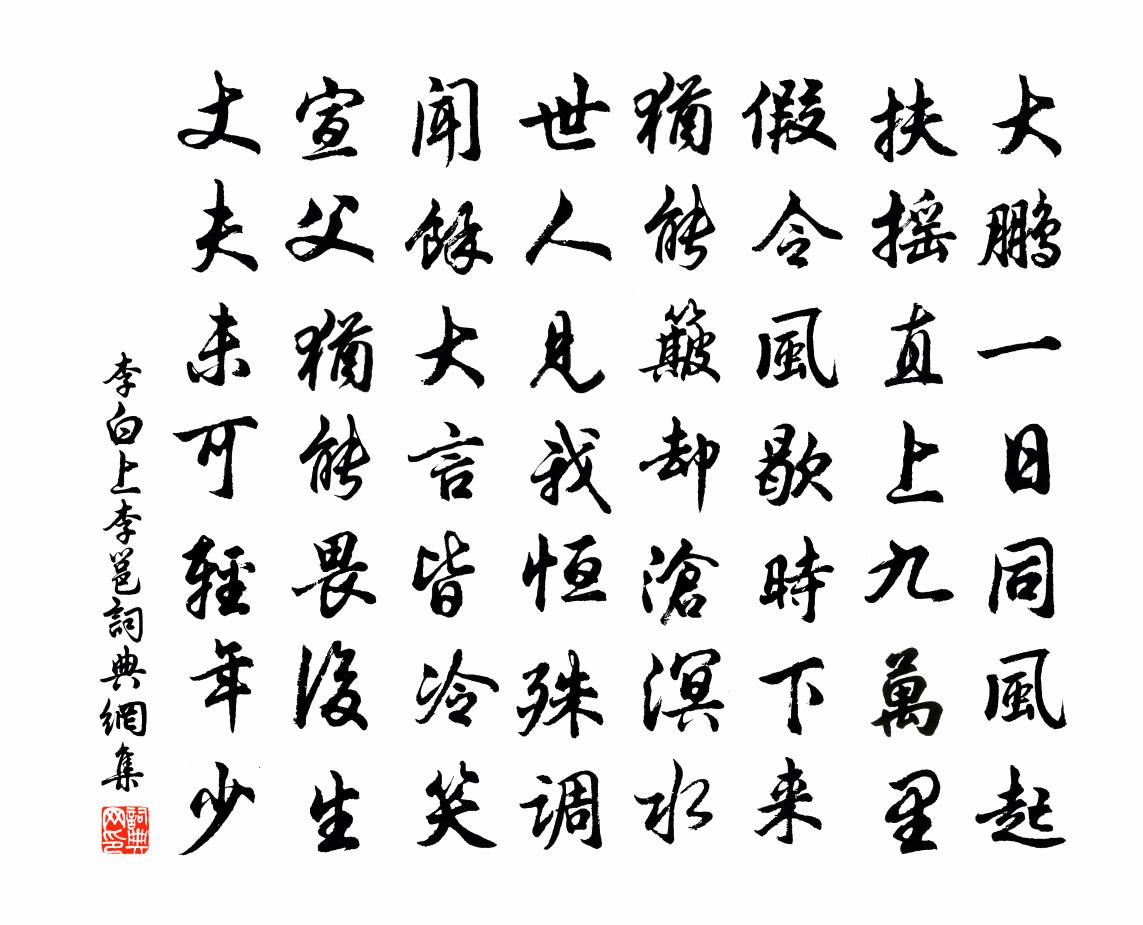 大鵬一日同風起
扶摇直上九萬里
假令風歇時下来
猶能簸却滄溟水
世人見我恒殊调
闻餘大言皆冷笑
宣父猶能畏後生
丈夫未可輕年少
李白上李邕詞典網集
詞典网印